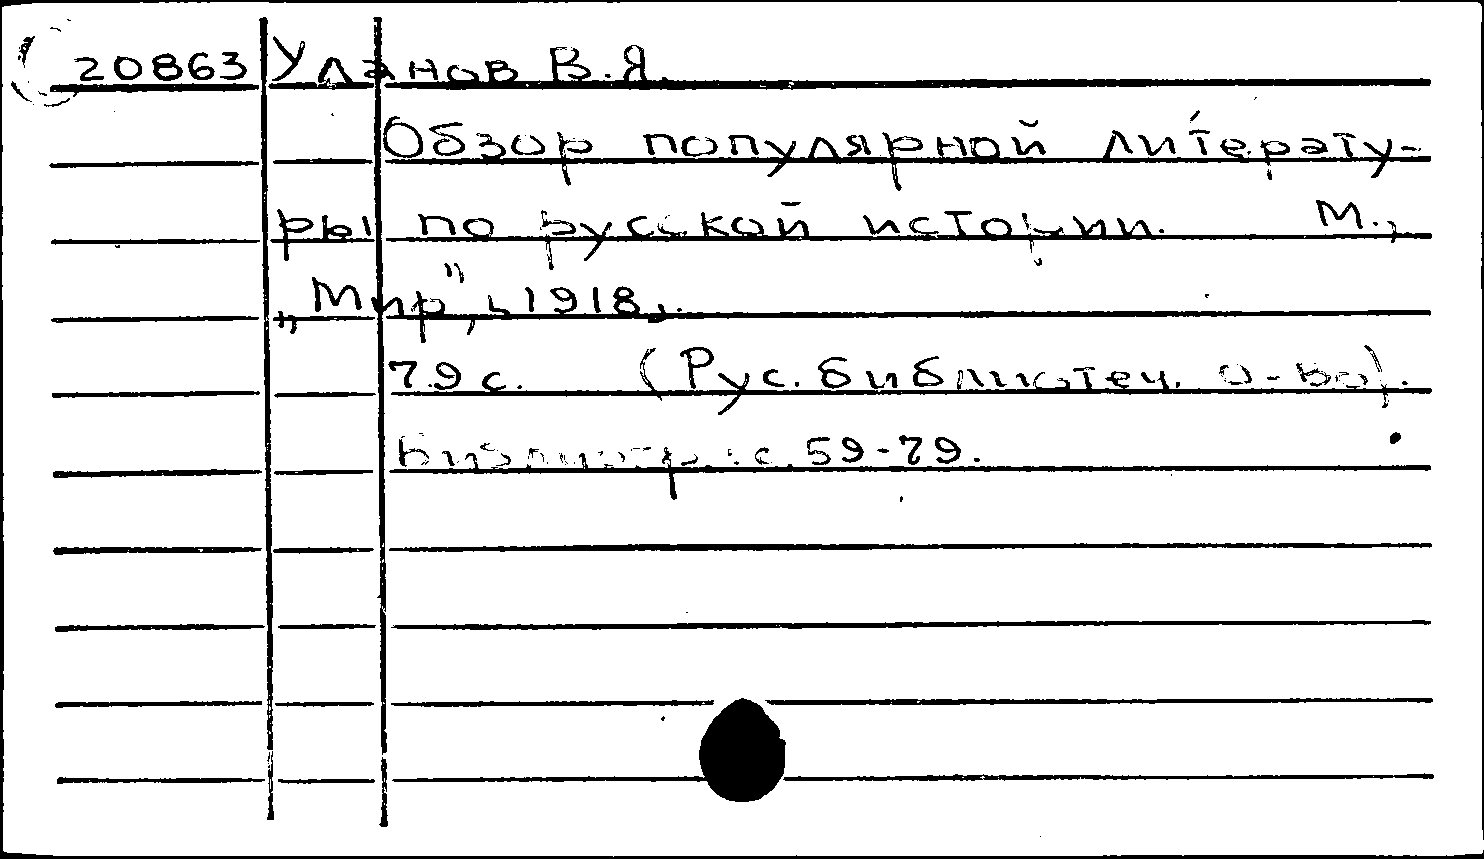 20863 Уланов В.Я.
Обзор популярной литерату-
ры по русской истории. М.,
„Мир", 1918.
79 с. (Рус. библиотеч. о-во).
Библиогр.: с. 59-79.